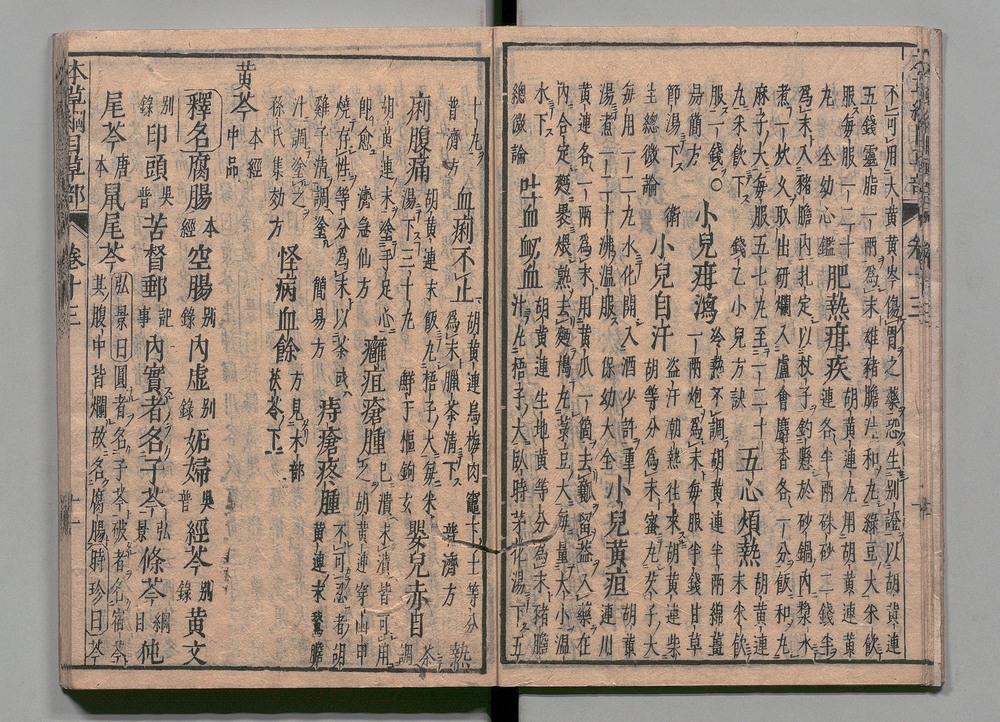 不可用大黃黃芩傷胃之藥恐生別證以胡黃連
五錢靈脂一兩爲末雄豬膽汁和丸綠豆大米飲
服每服一二十丸 全幼心鑑 肥熱疳疾 胡黃連丸用胡黃連黃連各半兩硃砂二錢半
爲末入豬膽內扎定以杖子釣懸於砂鍋內漿水
煮一炊久取出研爛入盧會麝香各一分飯和丸
麻子大每服五七丸至一二十丸米飲下 錢乙小兒方訣 五心煩熱 胡黃連末米飲
服一錢○易簡方 小兒疳瀉 冷熱不調胡黃連半兩綿薑一兩炮爲末每服半錢甘草
節湯下 衛生總微論 小兒自汗 盜汗潮熱往來胡黃連柴胡等分爲末蜜丸芡子大
每用一二丸水化開入酒少許重
湯煮一二十沸溫服 保幼大全 小兒黃疸 胡黃連川
黃連各一兩爲末用黃瓜一箇去瓤留蓋入藥在
內合定麫裹煨熟去麫搗丸菉豆大每量大小溫
水下 總微論 吐血衄血 胡黃連生地黃等分爲末豬膽汁丸梧子大臥時茅花湯下五
十丸 普濟方 血痢不止 胡黃連烏梅肉竈下土等分爲末臘茶清下 普濟方 熱
痢腹痛 胡黃連末飯丸梧子大每米湯下三十丸 鮮于樞鉤玄 嬰兒赤目 茶調
胡黃連末塗手足心即愈 濟急仙方 癰疽瘡腫 已潰未潰皆可用之胡黃連穿山甲
燒存性等分爲末以茶或雞子清調塗 簡易方 痔瘡疼腫 不可忍者胡黃連末鵞膽
汁調塗之 孫氏集效方 怪病血餘 方見木部茯苓下
黃芩 本經中品
釋名 腐腸 本經 空腸 別錄 內虛 別錄 妬婦 吳普 經芩 別錄 黃文
別錄 印頭 吳普 苦督郵 記事 內實者名子芩 弘景 條芩 綱目 㹠
尾芩 唐本 鼠尾芩 弘景曰圓者名子芩破者名宿芩其腹中皆爛故名腐腸時珍曰芩
本草綱目草部 卷十三 十一